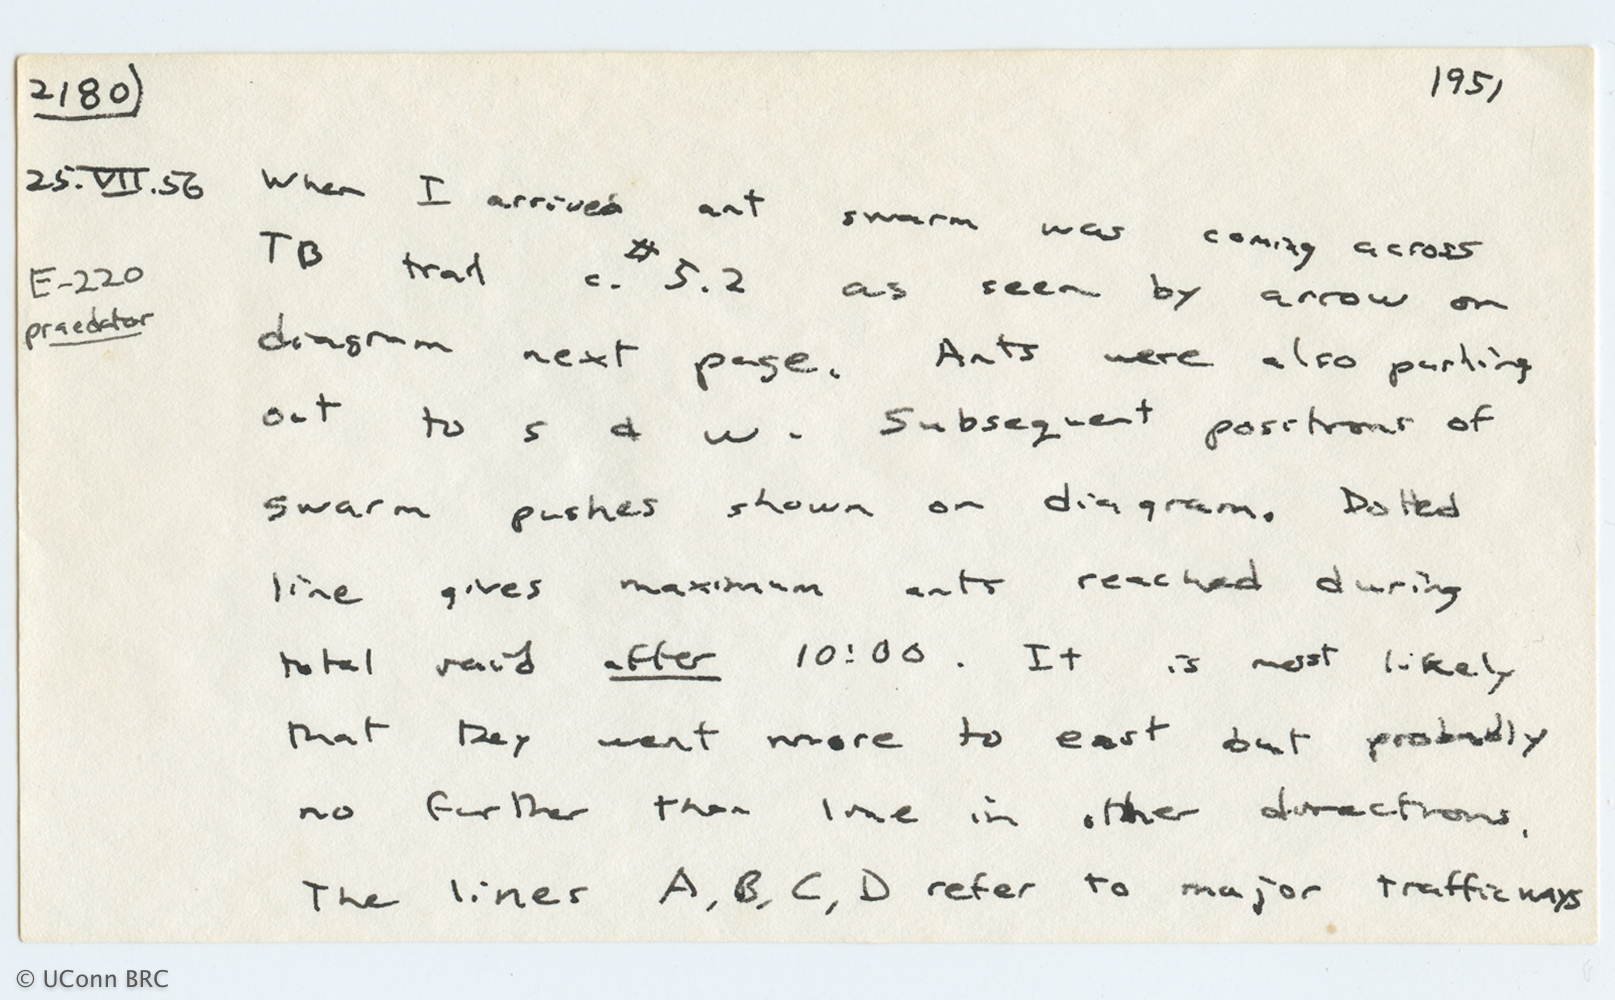 2180) 1951
25.VII.56 When I arrived ant swarm was coming across
TB trail c. #5.2 as seen by arrow on
E-220
praedator
diagram next page. Ants were also pushing
out to S & W. Subsequent positions of
swarm pushes shown on diagram. Dotted
line gives maximum ants reached during
total raid after 10:00. It is most likely
that they went more to east but probably
no further than line in other directions.
The lines A, B, C, D refer to major trafficways
© UConn BRC